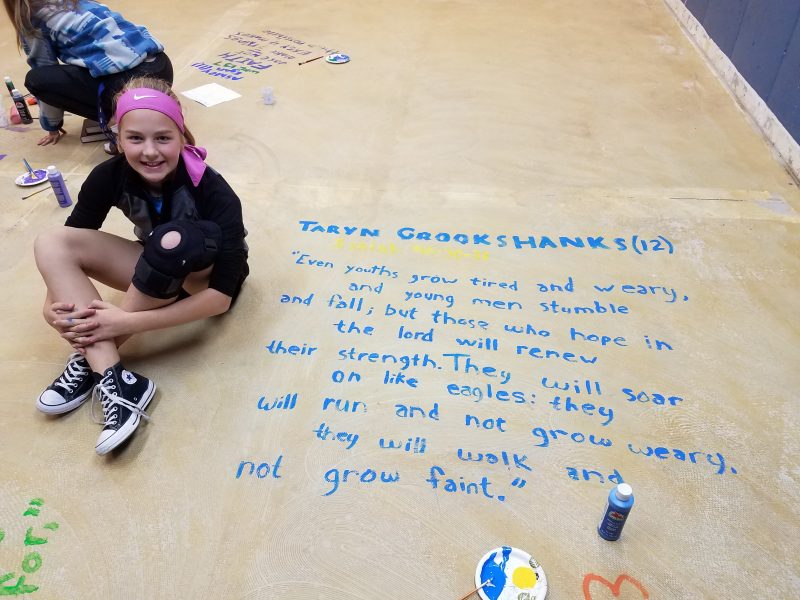 TARYN CROOKSHANKS (12)
"Even youths grow tired and weary,
and young men stumble
and fall; but those who hope in
the lord will renew
their strength. They will soar
on like eagles: they
will run and not grow weary,
they will walk and
not grow faint."
FAITH
for"
3